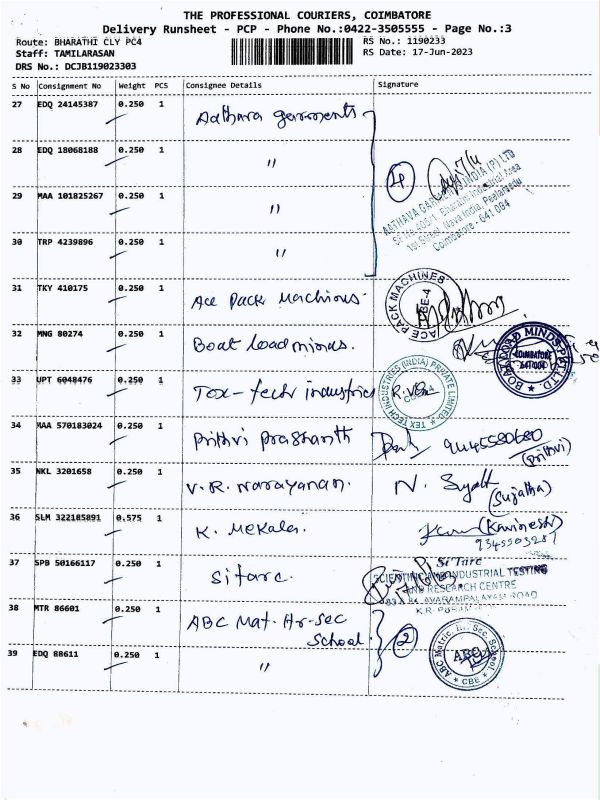 THE PROFESSIONAL COURIERS, COIMBATORE
Delivery Runsheet - PCP - Phone No.:0422-3505555 - Page No.:3
Route: BHARATHI CLY PC4
RS No.: 1190233
Staff: TAMILARASAN
RS Date: 17-Jun-2023
DRS No.: DCJB119023303
S No Consignment No Weight PCS Consignee Details Signature
27 EDQ 24145387 0.250 1 Aathava garments
28 EDQ 18068188 0.250 1 "
4
AATHAVA GARMENTS INDIA (P) LTD
1st Street, Nava India, Peelamedu
Coimbatore - 641 004
29 MAA 101825267 0.250 1 "
30 TRP 4239896 0.250 1 "
31 TKY 410175 0.250 1 Ace Pack Machines.
ACE PACK MACHINES
CBE-4
32 MNG 80274 0.250 1 Boat load minds.
COIMBATORE
641 004
33 UPT 6048476 0.250 1 Tex-tech industries
TEX TECH INDUSTRIES (INDIA) PRIVATE LIMITED
34 MAA 570183024 0.250 1 Prithvi Prashanth
(Prithvi)
35 NKL 3201658 0.250 1 V.R. Narayanan.
(Sujatha)
36 SLM 322185891 0.575 1 K. Mekala.
(Kavinesh)
9345503281
37 SPB 50166117 0.250 1 Sitarc.
Si'Tarc
SCIENTIFIC AND INDUSTRIAL TESTING
AND RESEARCH CENTRE
AVARAMPALAYAM ROAD
38 MTR 86601 0.250 1 ABC Mat. Hr-sec
School.
2
ABC Matric. Hr. Sec. School.
CBE
39 EDQ 88611 0.250 1 "